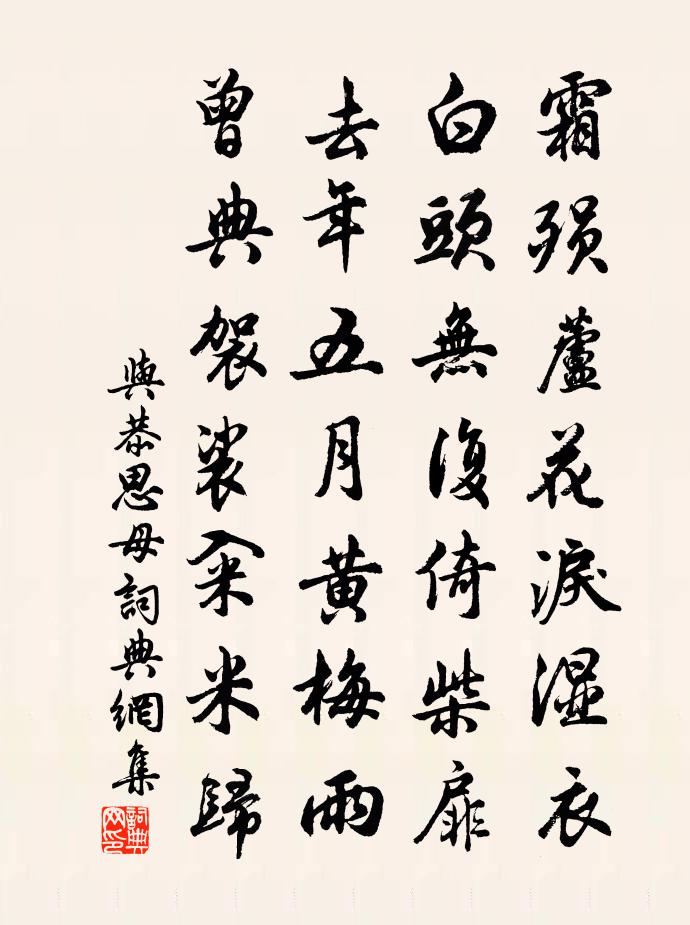 霜殞蘆花淚濕衣
白頭無復倚柴扉
去年五月黃梅雨
曾典袈裟籴米歸
與恭思母詞典網集
詞典網印